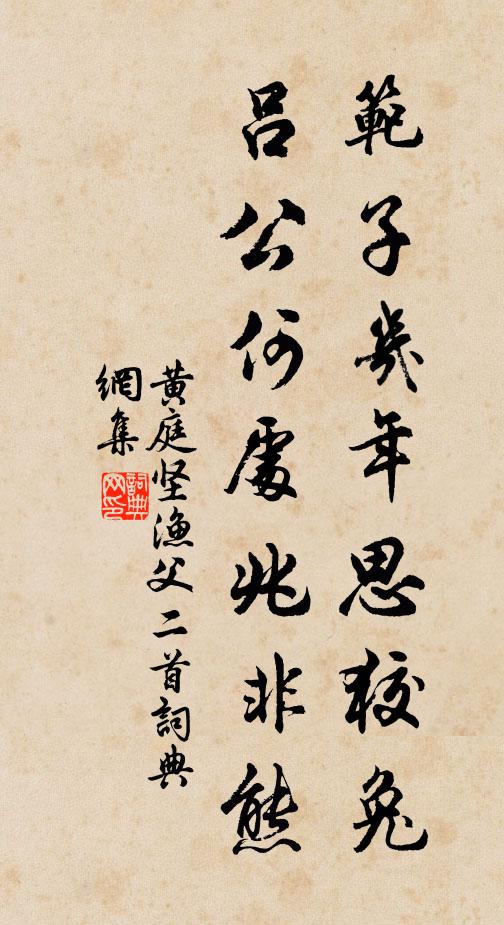 範子幾年思狡兔
吕公何處兆非熊
黃庭坚漁父二首詞典
網集
詞典
网印